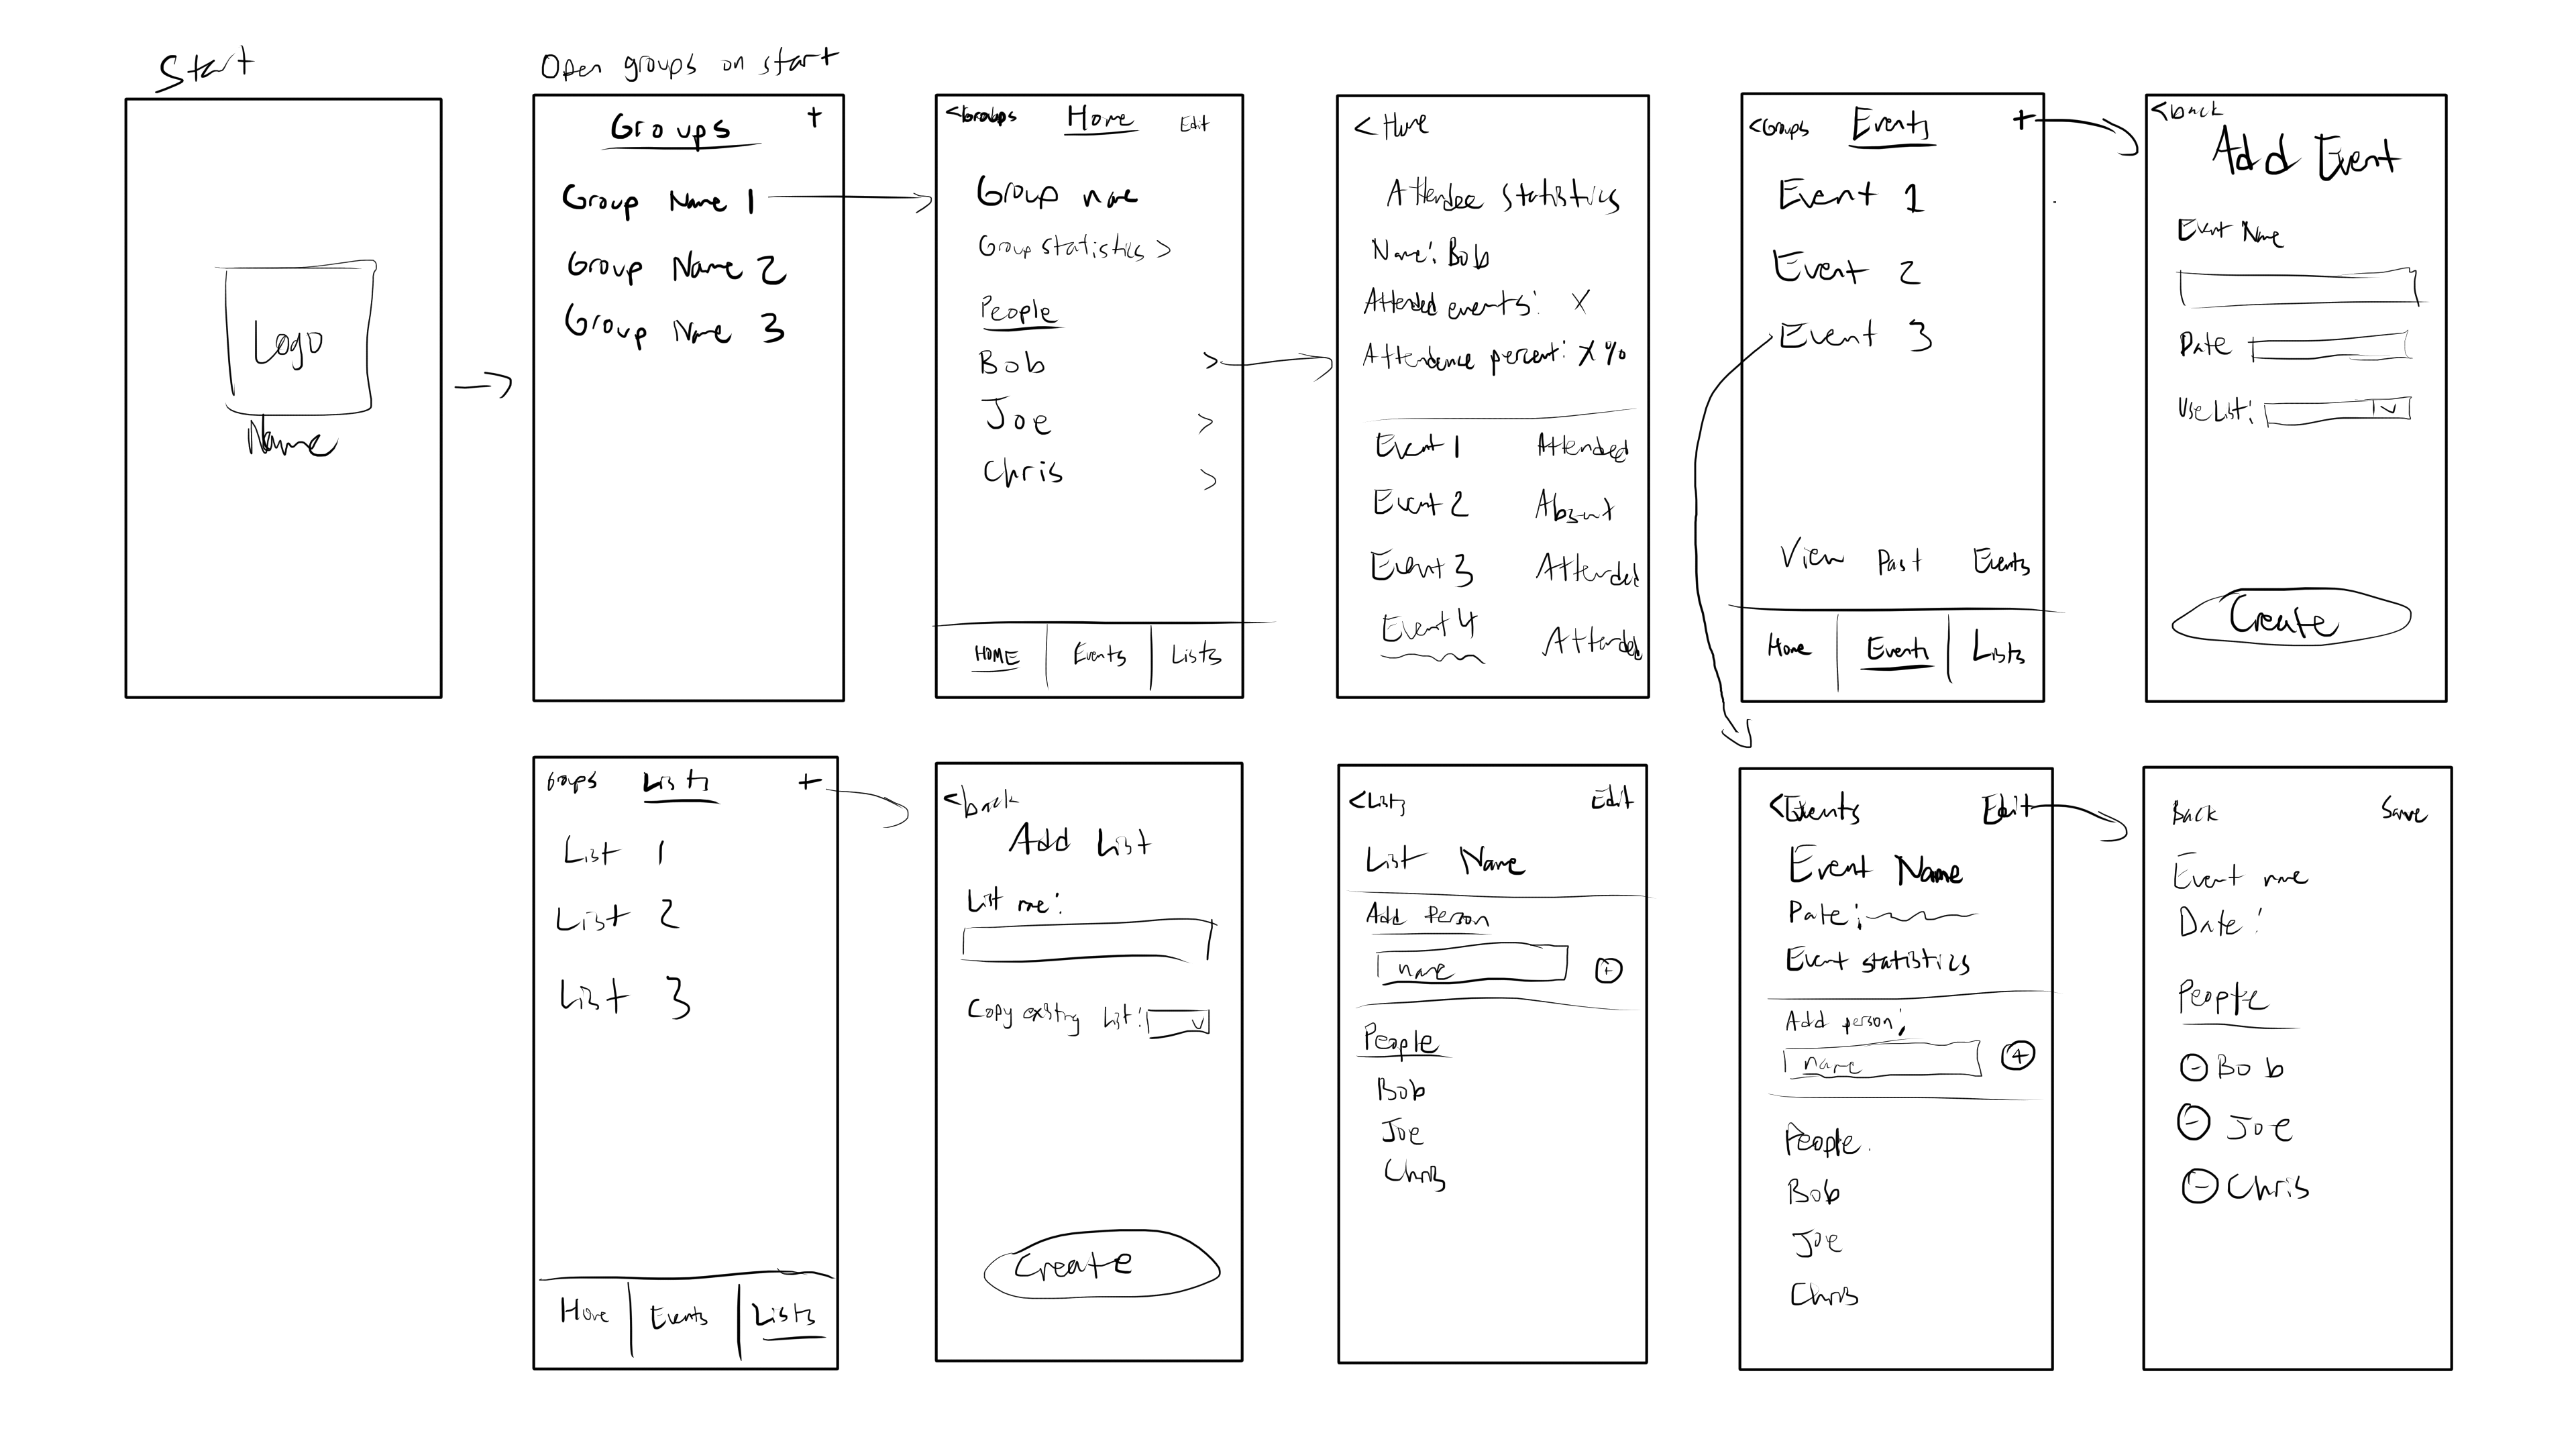 Start
Logo
Name
Open groups on start
Groups +
Group Name 1
Group Name 2
Group Name 3
<Groups Home Edit
Group name
Group statistics >
People
Bob >
Joe >
Chris >
HOME Events Lists
< Home
Attendee statistics
Name: Bob
Attended events: X
Attendance percent: X %
Event 1 Attended
Event 2 Absent
Event 3 Attended
Event 4 Attended
<Groups Events +
Event 1
Event 2
Event 3
View Past Events
Home Events Lists
<back
Add Event
Event Name
Date
Use List:
Create
Groups Lists +
List 1
List 2
List 3
Home Events Lists
<back
Add List
List name:
Copy existing list:
Create
<Lists Edit
List Name
Add Person
name +
People
Bob
Joe
Chris
<Events Edit
Event Name
Date:
Event statistics
Add person:
name +
People
Bob
Joe
Chris
Back Save
Event name
Date:
People
- Bob
- Joe
- Chris